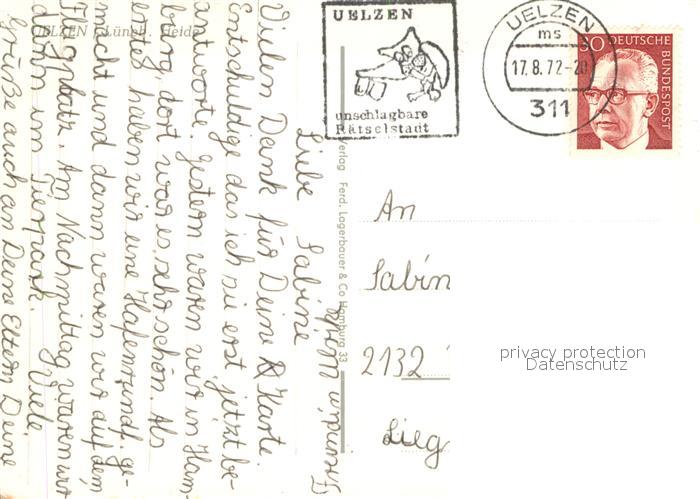 UELZEN / Lüneb. Heide
Liebe Sabine
Vielen Dank für Deine Karte.
Entschuldige das ich sie erst jetzt be-
antworte, gestern waren wir in Ham-
burg, dort war es sehr schön. Als
erstes haben wir eine Hafenrundf. ge-
macht und dann waren wir auf dem
Flugplatz. Am Nachmittag waren wir
dann im Tierpark. Viele
Grüße auch an Deine Eltern Deine
Verlag Ferd. Lagerbauer & Co Hamburg 33
UELZEN
unschlagbare
Rätselstadt
UELZEN
ms
17.8.72-20
311
30
DEUTSCHE
BUNDESPOST
An
Sabin
2132
Lieg
privacy protection
Datenschutz